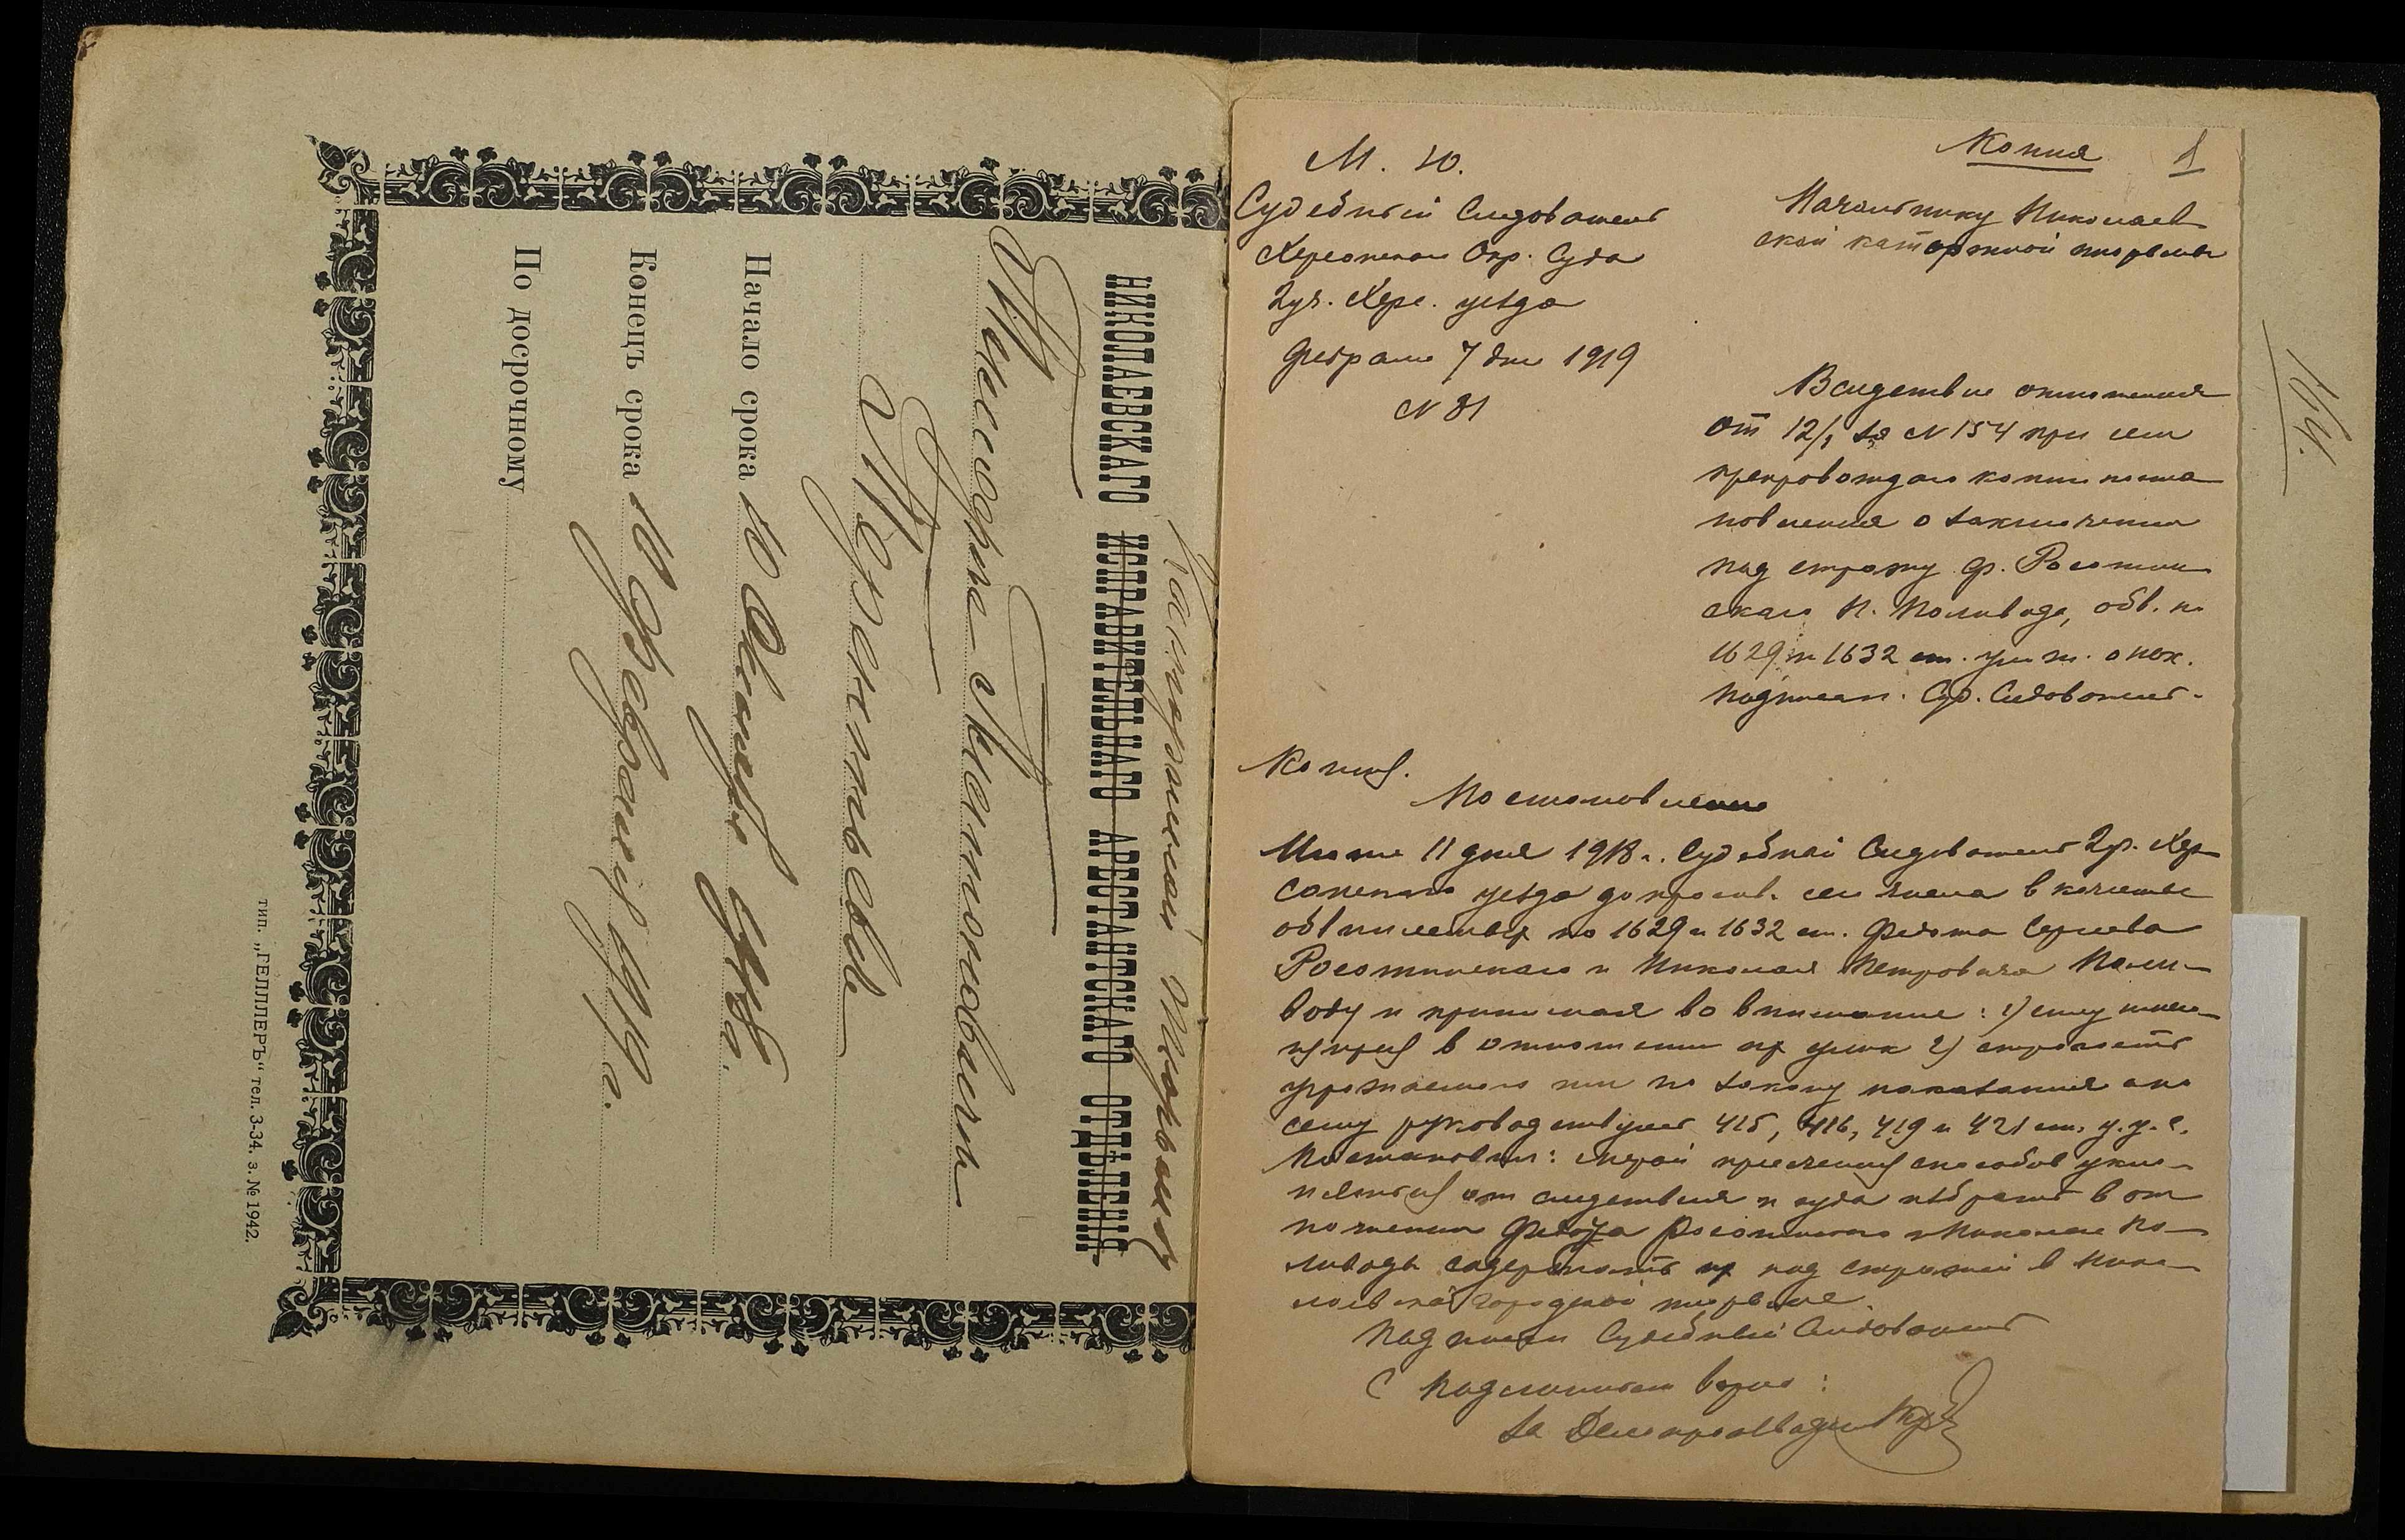 Каторжной тюрьмы
НИКОЛАЕВСКАГО ИСПРАВИТЕЛЬНАГО АРЕСТАНТСКАГО ОТДѢЛЕНІЯ
Терентьеве
Начало срока 10
Конецъ срока 10 Февраля 1919 г.
По досрочному
тип. „ГЕЛЛЛЕРЪ“ тел. 3-34. з. № 1942.
Копия 1
М. Ю.
Судебный Следователь
Херсонскаго Окр. Суда
2 уч. Херс. уезда
Февраля 7 дня 1919
N 81
Начальнику Николаев
ской каторжной тюрьмы
Вследствие отношения
от 12/1 за N 154 при сем
препровождаю копию поста
новления о заключении
под стражу Ф. Росотин
скаго Н. Поливода, обв. по
1629 и 1632 ст. улож. о нак.
подписал. Суд. Следователь.
164.
Копия.
Постановление
11 дня 1918 г. Судебный Следователь 2 у. Хер
сонскаго уезда допросив. сего числа в качестве
обвиняемых по 1629 и 1632 ст. Федота Сергеева
Росотинскаго и Николая Петровича Поли-
воду и принимая во внимание: 1)
в отношении их улик 2) строгость
угрожаемаго им по закону наказания а по
сему руководствуясь 415, 416, 419 и 421 ст. у. у. с.
Постановил: мерой пресечения способов укло-
от следствия и суда избрать в от
ношении Федота Росотинскаго и Николая По-
ливоды содержать их под стражей в Нико-
лаевской городской тюрьме.
Подписал Судебный Следователь
С подлинным верно:
За Делопроизводителя